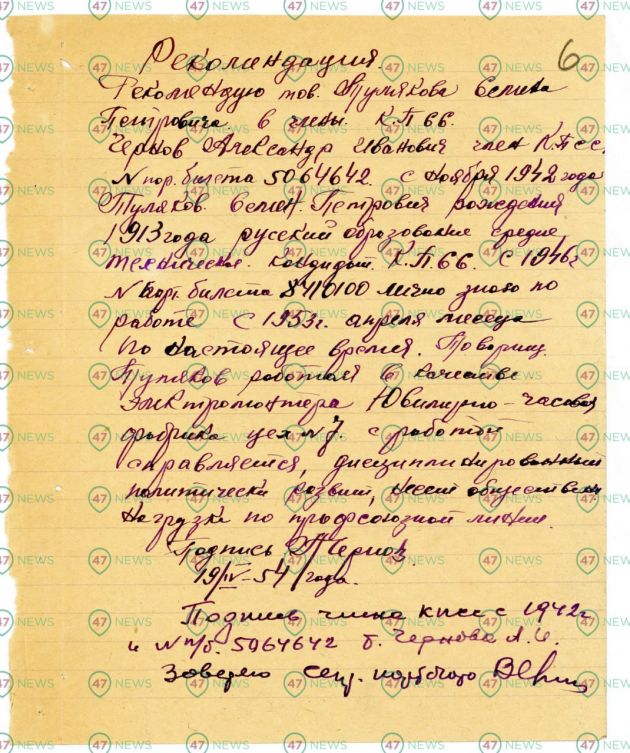 6
Рекомендация.
Рекомендую тов. Тулякова Семена
Петровича в члены К.П.СС.
Чернов Александр Иванович член К.П.СС.
N пар. билета 5064642 с ноября 1942 года
Туляков Семен Петрович рождения
1913 года русский образование средне
техническое кандидат К.П.СС. с 1946г
N парт. билета 8410100 лично знаю по
работе с 1953г. апреля месеца
по настоящее время. Товарищ
Туляков работает в качестве
электромонтера Ювилирно-часовая
фабрика цех N7. с работой
справляется, дисциплинированный
политически развит, несет обществен
нагрузки по профсоюзной линии.
Подпись Чернов.
19/IV-54 года.
Подпись члена КПСС с 1942г
и N п/б. 5064642 т. Чернова А.И.
Заверяю секр. партбюро